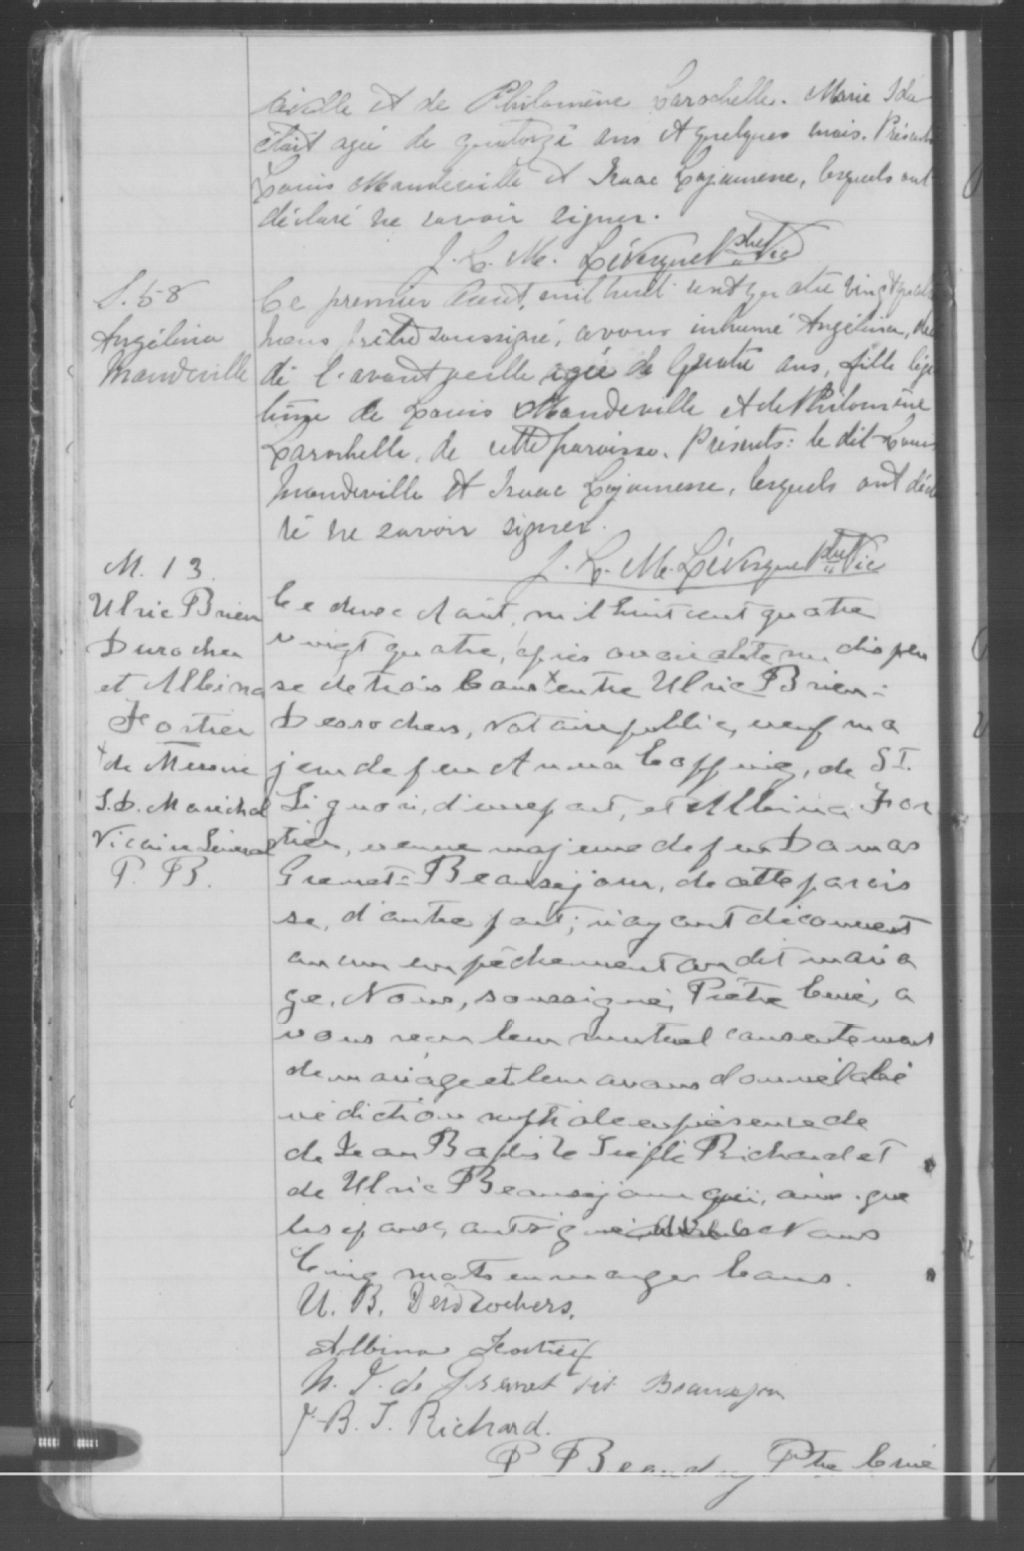 ville et de Philomène Larochelle. Marie Ida
était agée de quatorze ans et quelques mois. Présents
Louis Mandeville et Isaac Lajeunesse, lesquels ont
déclaré ne savoir signer.
J. L. M. Lévesque Ptre Vic
S. 58
Angélina
Mandeville
Ce premier Aout, mil huit cent quatre vingt quatre
nous prêtre soussigné, avons inhumé Angélina, décé
dé l'avant veille agée de Quatre ans, fille légi
time de Louis Mandeville et de Philomène
Larochelle, de cette paroisse. Présents: le dit Louis
Mandeville et Isaac Lajeunesse, lesquels ont décla
ré ne savoir signer.
J. L. M. Lévesque Ptre Vic
M. 13.
Ulric Brien
Durocher
et Albina
Fortier
+ de Messire
J. D. Maréchal
Vicaire Général
P. B.
Ce Aout, mil huit cent quatre
vingt quatre, après avoir obtenu dispen
se de trois bans + entre Ulric Brien-
Desrochers, Notaire public, veuf ma
jeur de feue Anna de St.
Liguori, d'une part, et Albina For
tier, veuve majeure de feu Damas
Grenet-Beausejour, de cette parois
se, d'autre part; n'ayant découvert
aucun empêchement au dit maria
ge, Nous, soussigné, Prêtre Curé, a
vons reçu leur mutuel consentement
de mariage et leur avons donné la bé
nédiction nuptiale en présence de
de Jean Baptiste Richard et
de Ulric Beausejour qui, ainsi que
les epoux, ont signé avec Nous
Cinq mots en marge bons.
U. B. Desrochers.
Albina Fortier
de Grenet dit Beausejour
J. B. T. Richard.
P Beaudry Ptre Curé